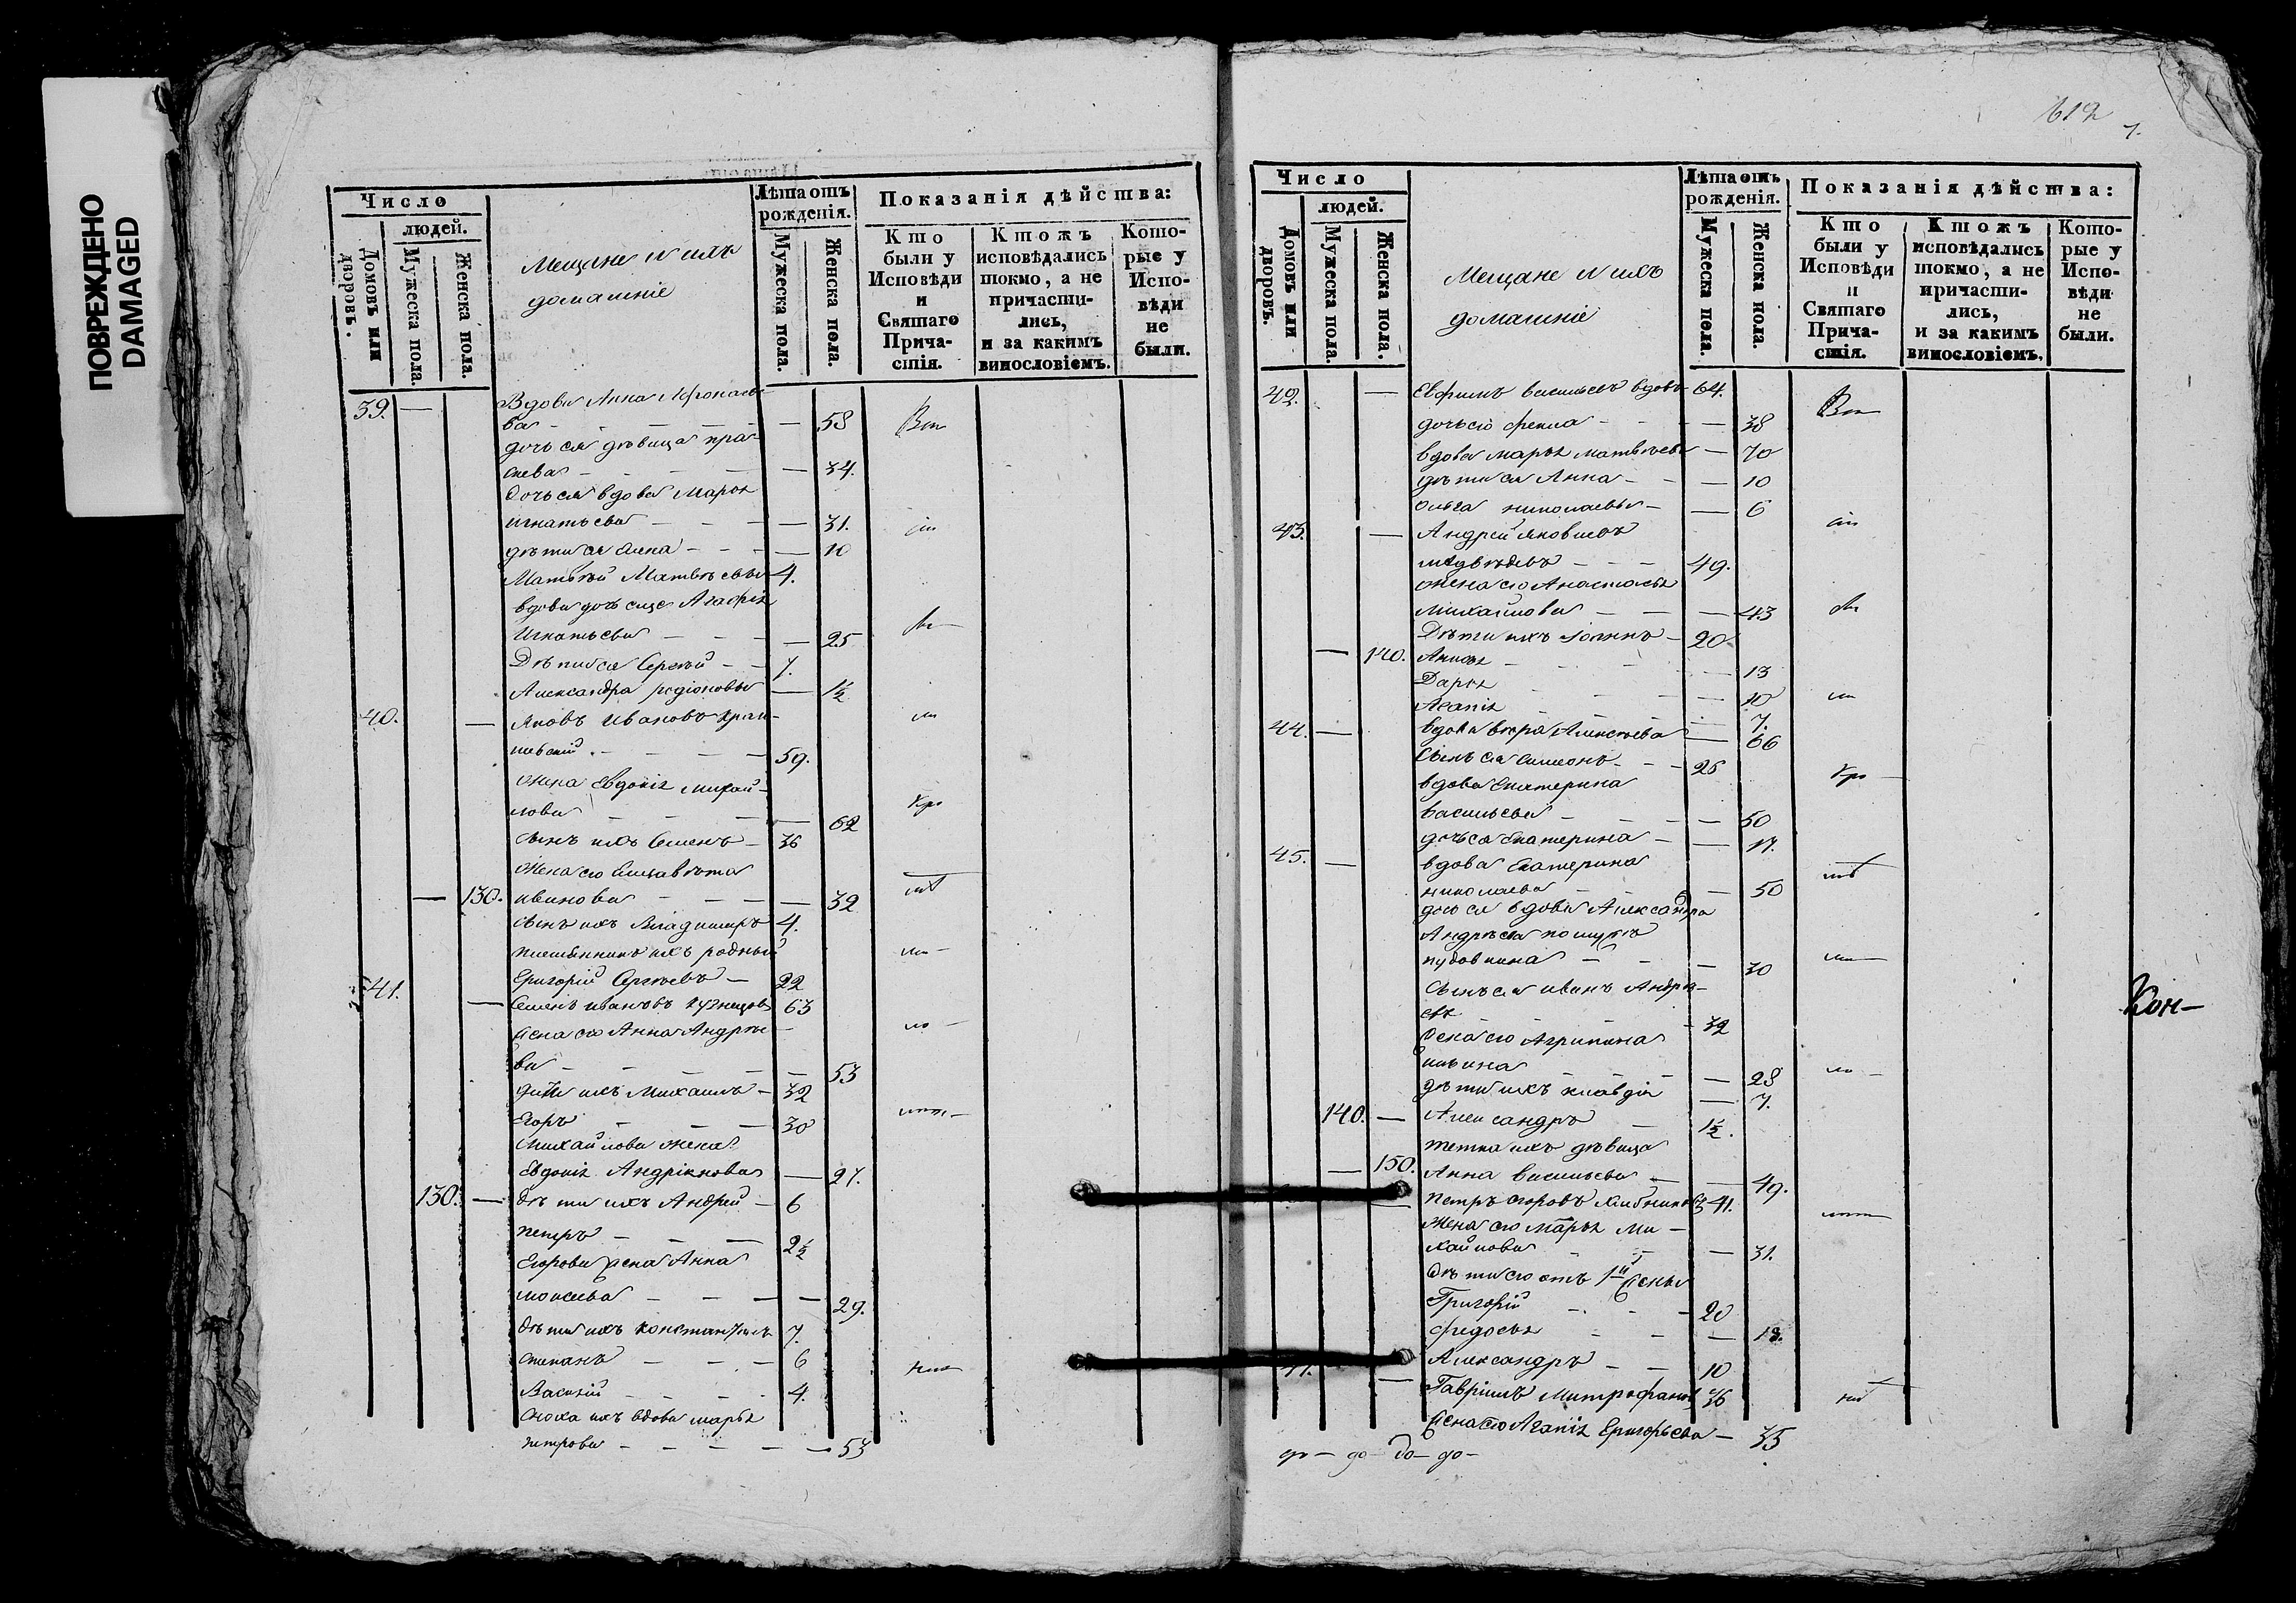 ПОВРЕЖДЕНО
DAMAGED
Число
людей.
Домовъ или дворовъ.
Мужеска пола.
Женска пола.
Мещане и ихъ
домашніе
Лѣта отъ
рожденія.
Мужеска пола.
Женска пола.
Показанія дѣйства:
Кто
были у
Исповѣди
и
Святаго
Прича-
стія.
Ктожъ
исповѣдались
токмо, а не
причасти-
лись,
и за какимъ
винословіемъ.
Кото-
рые у
Испо-
вѣди
не
были.
39. — Вдова Анна
ва — 58
дочь ея дѣвица пра-
скева — 34.
дочь ея вдова Марья
игнатьева — 31.
дѣти ея — 10
Матвѣй Матвѣевы 4.
вдова дочь еще Агафья
Игнатьева — 25
Дѣти ея Сергѣй — 7.
Александра родіоновы — 1½
40. — Яковъ Ивановъ
59.
жена Евдокія михай-
лова — 62
сынъ ихъ Семенъ — 36
жена его Елисавета
— 130. иванова — 32
сынъ ихъ Владимиръ 4.
племянникъ ихъ родный
Григорій Сергѣевъ — 22
41. — Семенъ ивановъ кузнецовъ 63
жена его Анна Андрее-
ва — 53
дѣти ихъ Михаилъ — 32
Егоръ — 30
Михайлова жена
Евдокія Андріянова — 27.
130. — дѣти ихъ Андрей — 6
петръ — 2½
Егорова жена Анна
моисеева — 29.
дѣти ихъ константинъ 7.
степанъ — 6
Василій — 4.
сноха ихъ вдова марья
петрова — 53
612
7.
Число
людей.
Домовъ или дворовъ.
Мужеска пола.
Женска пола.
Мещане и ихъ
домашніе
Лѣта отъ
рожденія.
Мужеска пола.
Женска пола.
Показанія дѣйства:
Кто
были у
Исповѣди
и
Святаго
Прича-
стія.
Ктожъ
исповѣдались
токмо, а не
причасти-
лись,
и за какимъ
винословіемъ.
Кото-
рые у
Испо-
вѣди
не
были.
42. — Ефимъ васильевъ вдовъ 64.
дочь его фекла — 38
вдова марья матвѣева — 70
дѣти ея Анна — 10
ольга николаевы — 6
43. — Андрей яковлевъ
медведевъ — 49.
жена его Анастасья
михайлова — 43
Дѣти ихъ Іоаннъ — 20
— 140. — 13
Дарья — 10
Агапія — 7.
44. — вдова вѣра Алексѣева — 66
сынъ ея симеонъ — 25
вдова Екатерина
васильева — 50
дочь ея Екатерина — 17.
45. — вдова Екатерина
николаева — 50
дочь ея вдова Александра
Андрѣева по мужѣ
пудовкина — 30
сынъ ея иванъ Андре-
евъ — 32
жена его Агрипина
ильина — 28
дѣти ихъ клавдія — 7.
140. — Александръ — 1½.
тетка ихъ дѣвица
— 150. Анна васильева — 49.
— петръ егоровъ 41.
жена его марья ми-
хайлова — 31.
дѣти его отъ 1й жены
Григорій — 20
Федосья — 18.
Александръ — 10
— Гавріилъ Митрофановъ 36
жена его Агапія Григорьева — 35
до— до— до—
Кон—